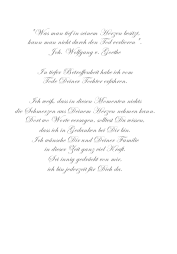 "Was man tief in seinem Herzen besitzt,
kann man nicht durch den Tod verlieren".
Joh. Wolfgang v. Goethe
In tiefer Betroffenheit habe ich vom
Tode Deiner Tochter erfahren.
Ich weiß, dass in diesen Momenten nichts
die Schmerzen aus Deinem Herzen nehmen kann.
Dort wo Worte versagen, solltest Du wissen
dass ich in Gedanken bei Dir bin.
Ich wünsche Dir und Deiner Familie
in dieser Zeit ganz viel Kraft.
Sei innig gedrückt von mir,
ich bin jederzeit für Dich da.